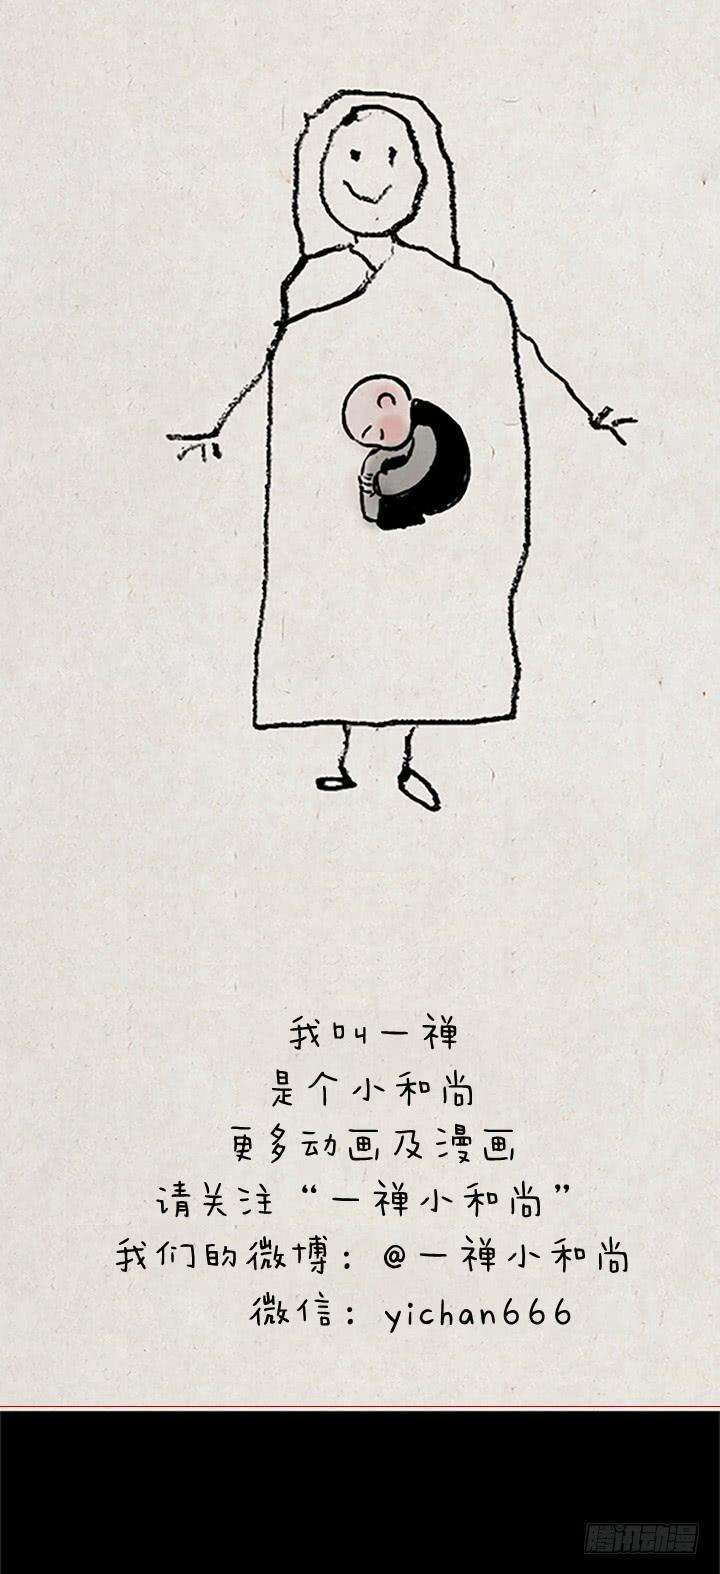 我叫一禅
是个小和尚
更多动画及漫画
请关注“一禅小和尚”
我们的微博：@一禅小和尚
微信：yichan666
腾讯动漫